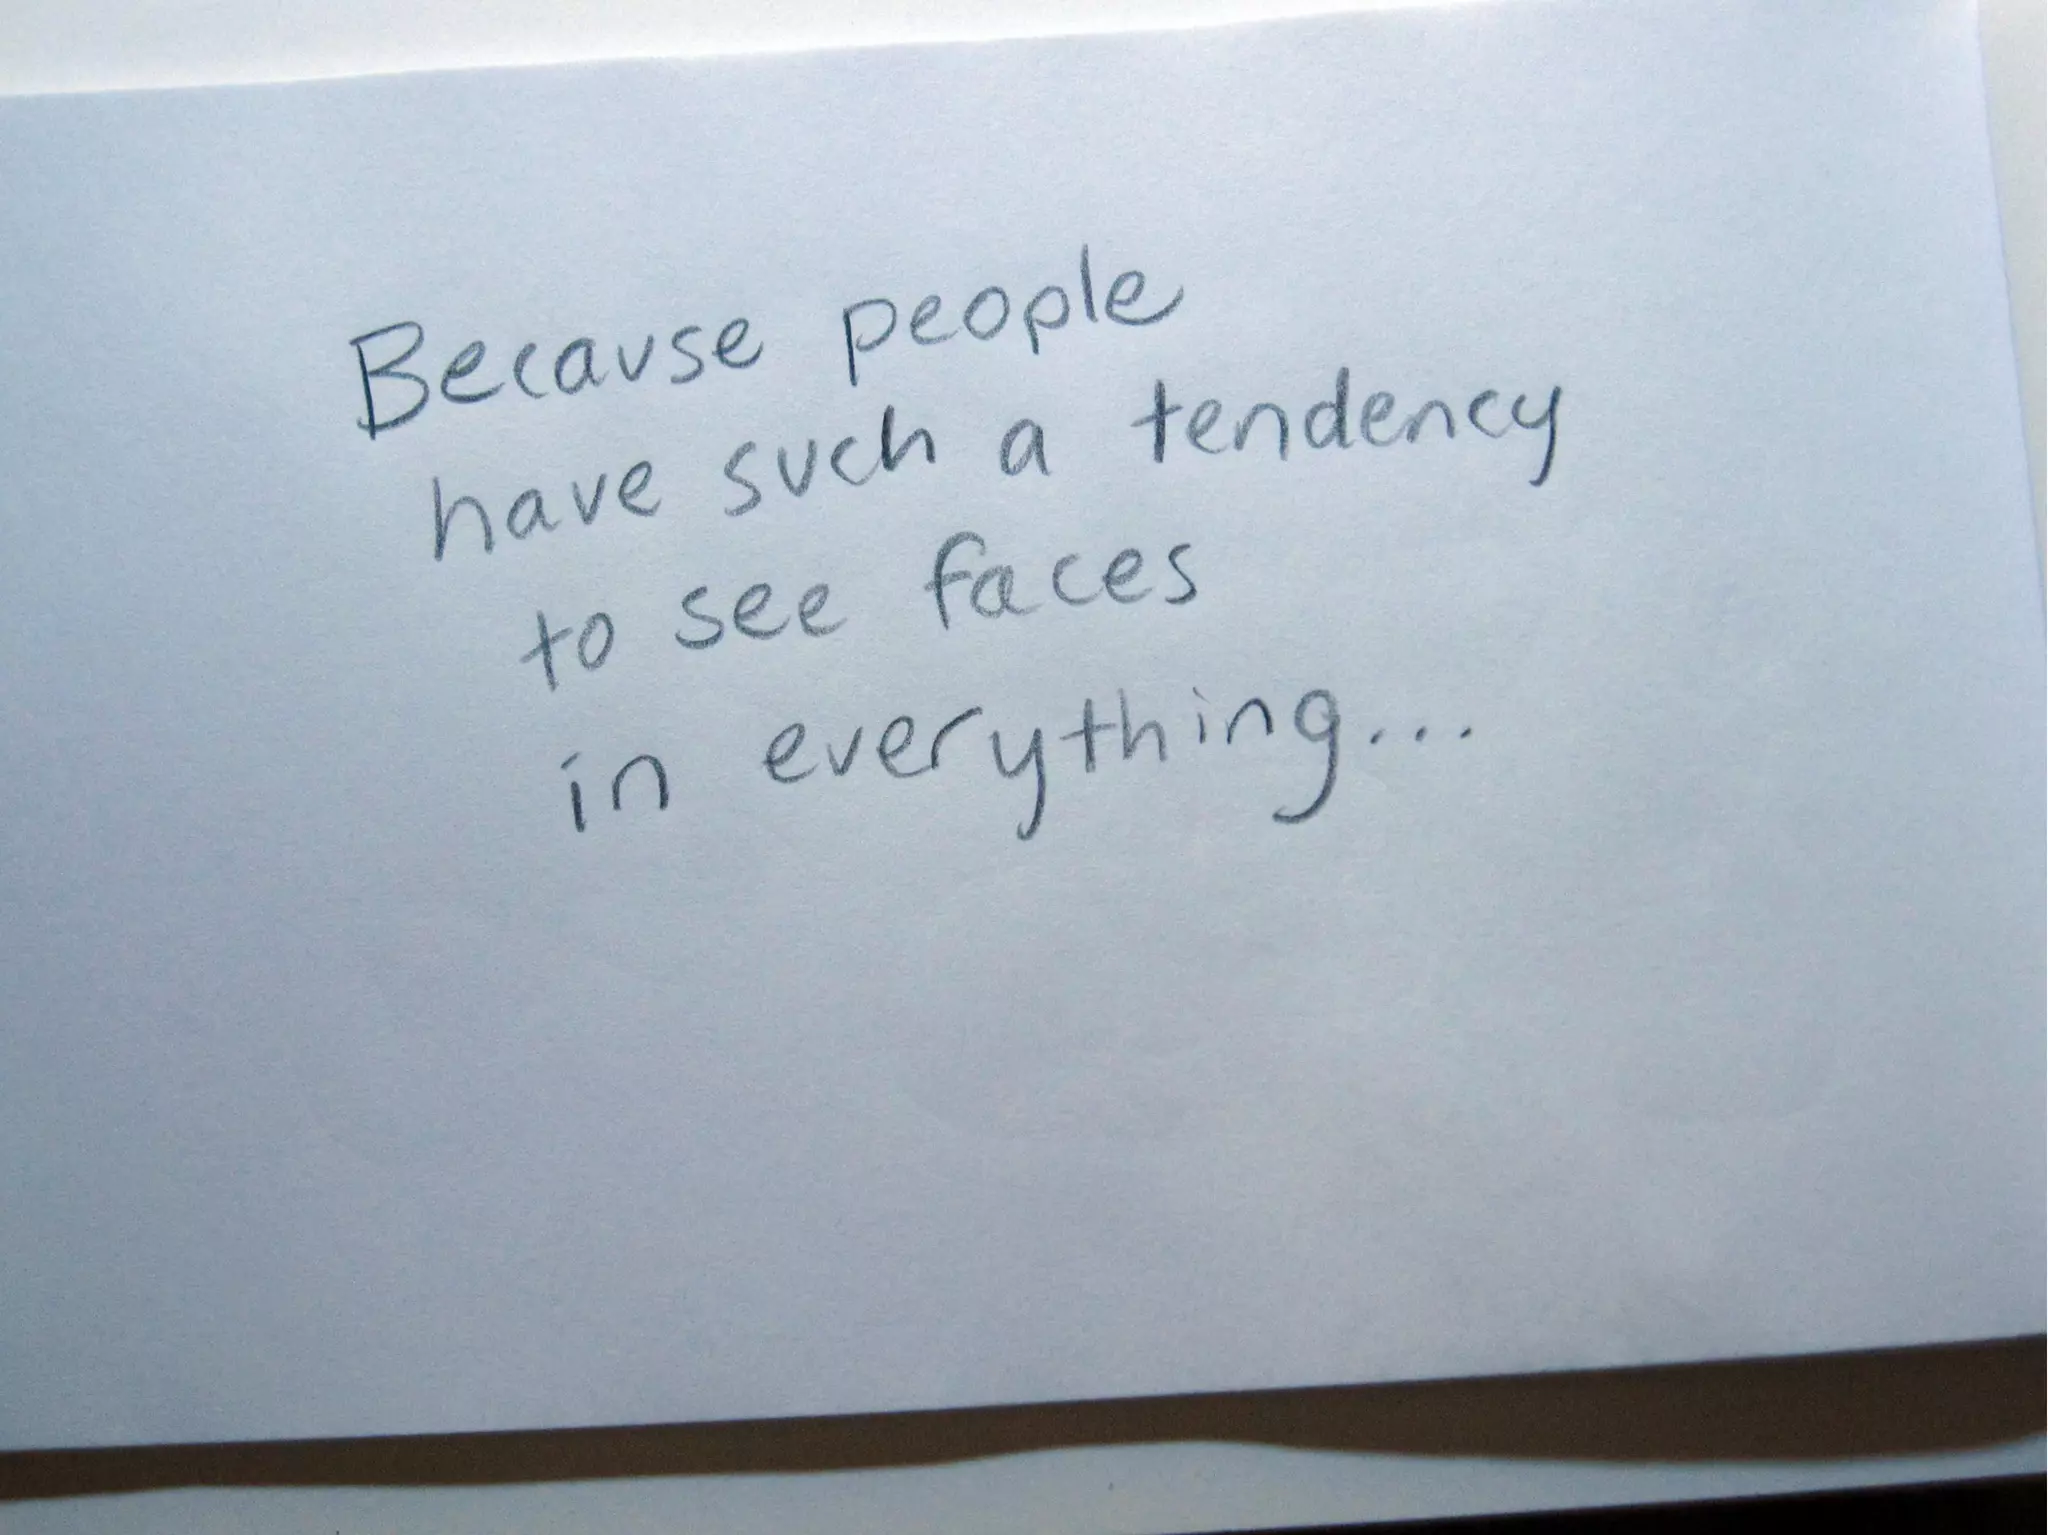 Because people
have such a tendency
to see faces
in everything...